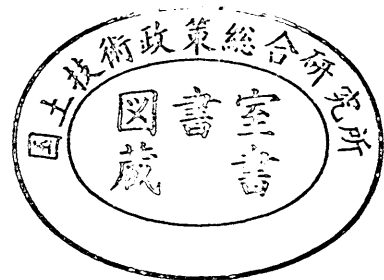 国土技術政策総合研究所
図書室
蔵書